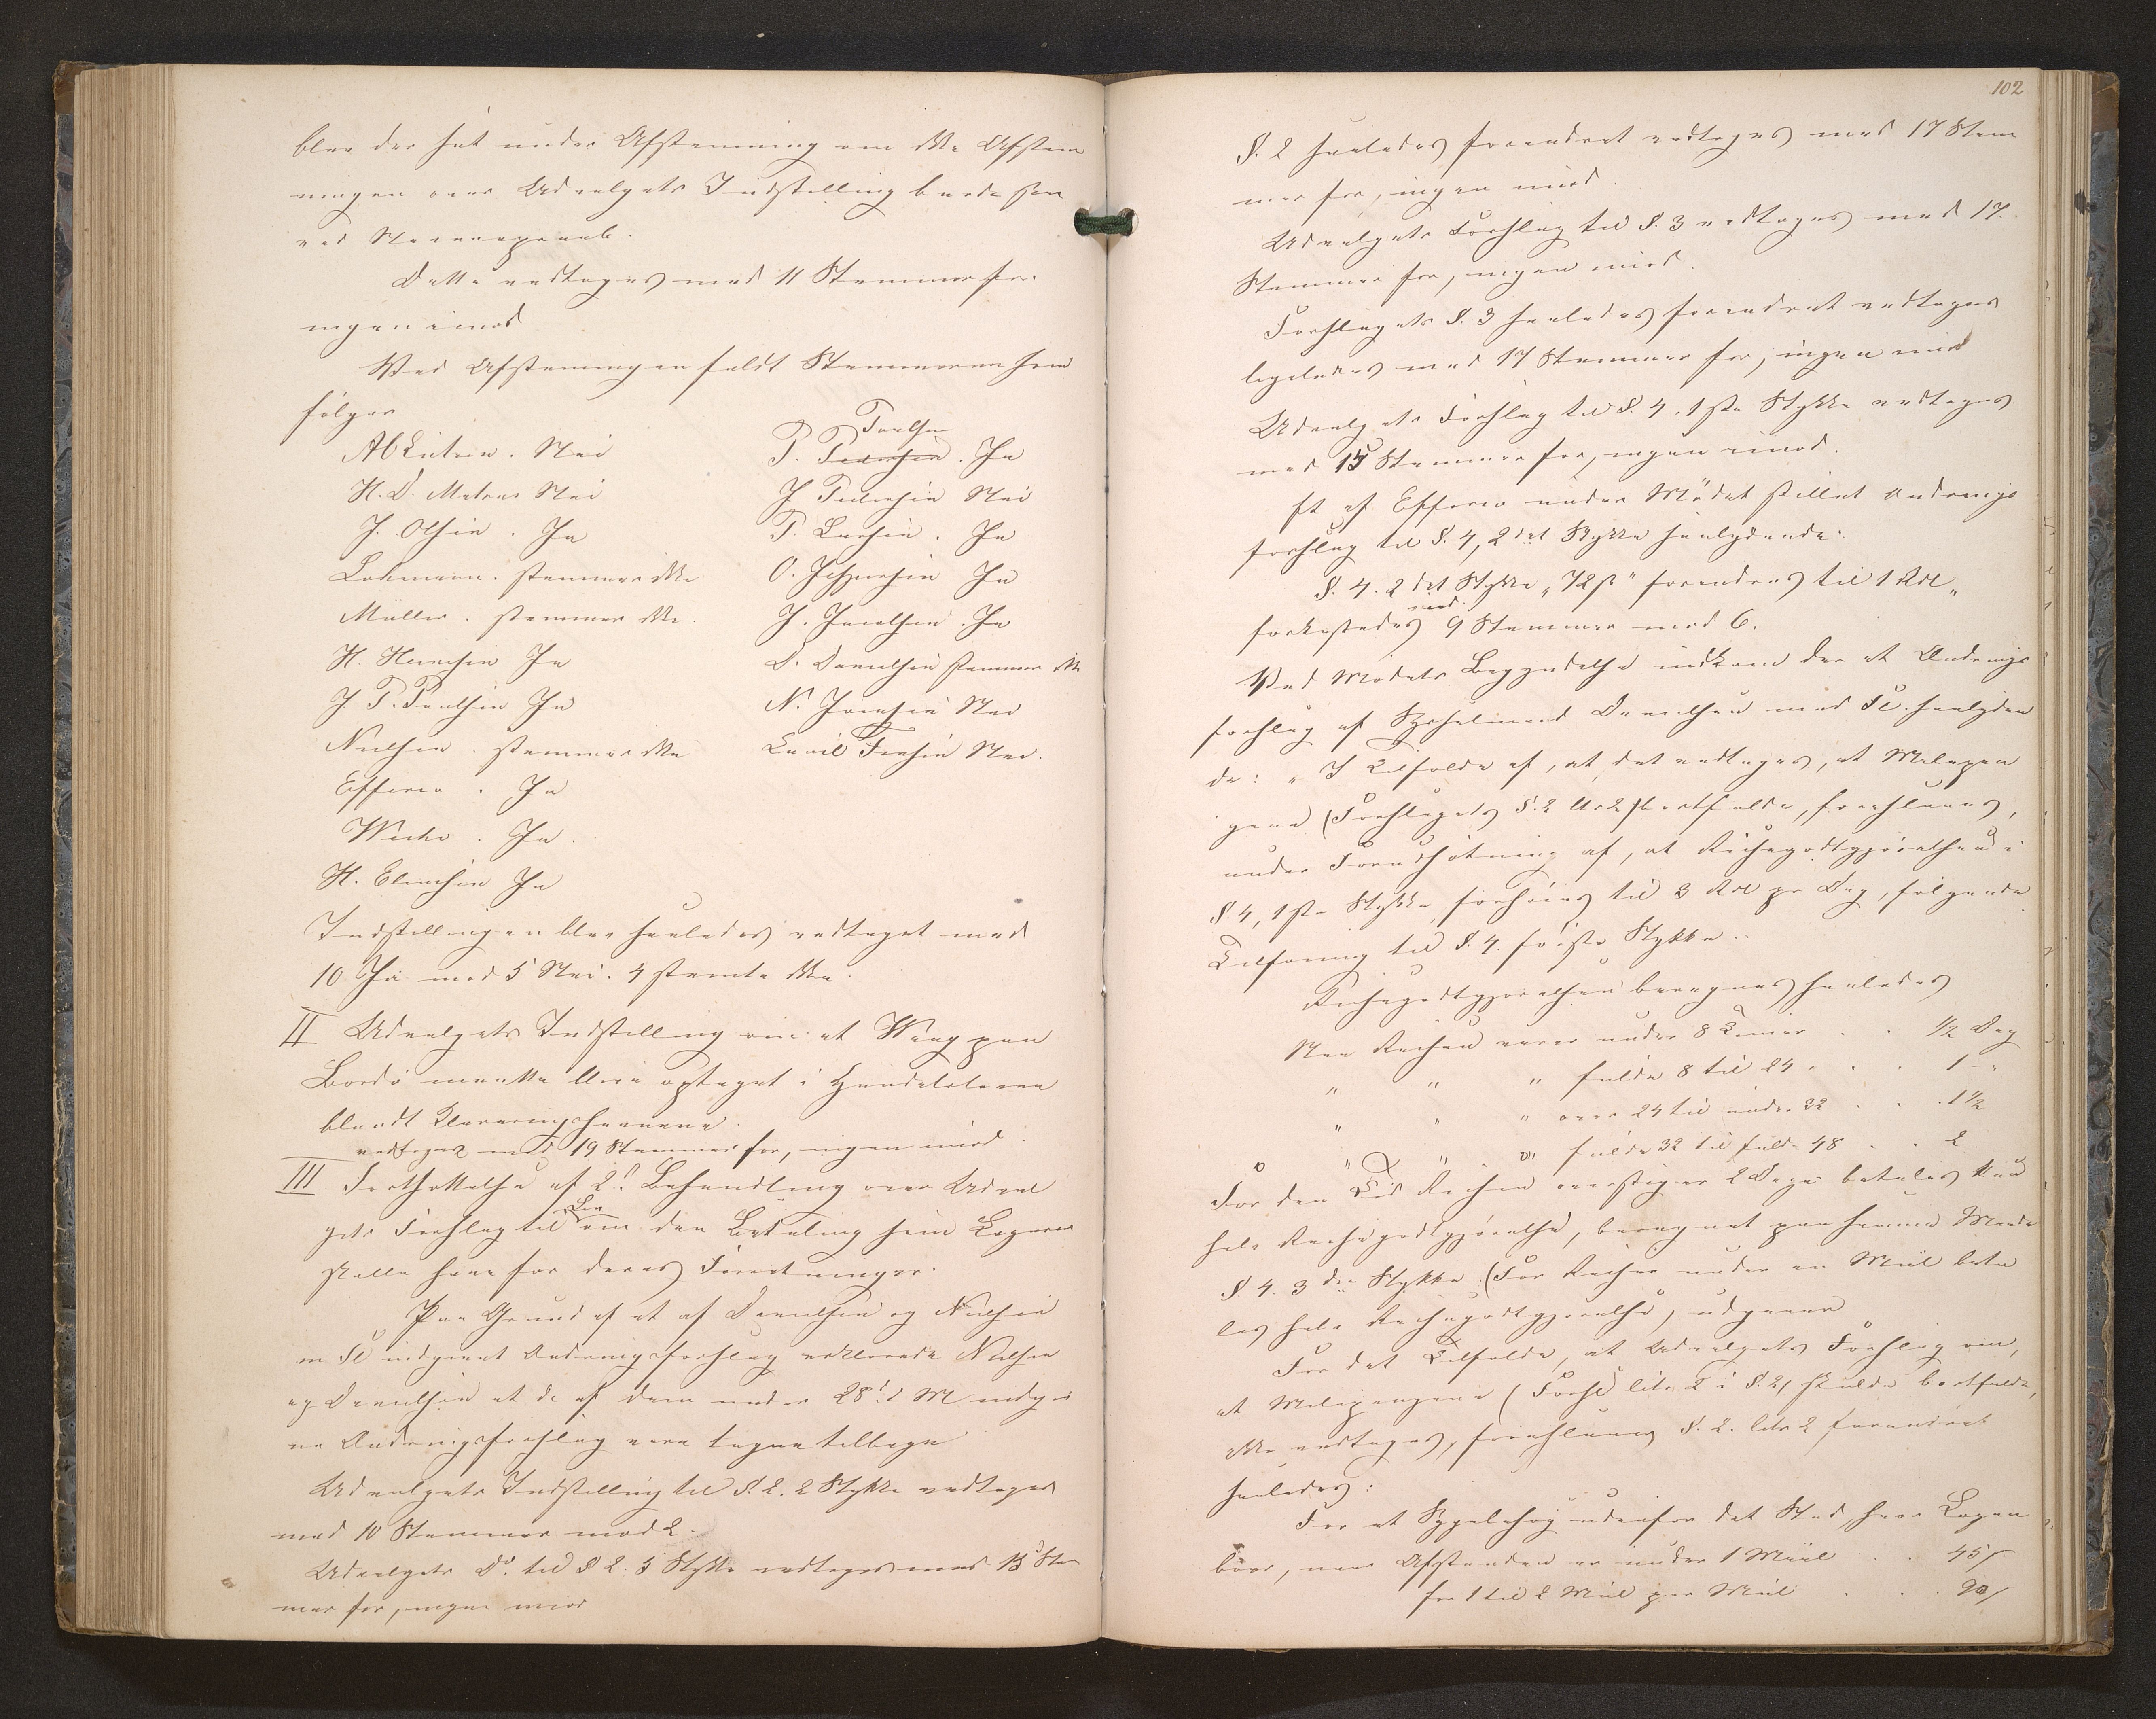 blev der sat under Afstemning om ikke Afstem
ningen over Udvalgets Indstilling burde ske
ved Navneopraab.
Dette vedtoges med 11 Stemmer for
ingen imod
Ved Afstemningen faldt Stemmerne som
følger
Nei
H.D. Matras Nei
J. Olsen. Ja
Lohmann. stemmer ikke
Müller. stemmer ikke.
H. Hansen Ja
J P. Poulsen Ja
Nielsen. stemmer ikke
Effersø. Ja
Weihe. Ja.
H. Ja
Poulsen
P. Pedersen. Ja
J Pedersen Nei
P. Larsen. Ja
O. Jespersen Ja
J. Jacobsen. Ja
D. Danielsen stemmer ikke
N. Joensen Nei
Joensen Nei.
Indstillingen blev saaledes vedtaget med
10 Ja mod 5 Nei. 4 stemte ikke.
II Udvalgets Indstilling om at Waag paa
Bordø maatte blive optaget i Handelsloven
blandt Klareringshavnene.
vedtoges med 19 Stemmer for, ingen imod
III Fortsættelse af 2d. Behandling over Udval
gets Forslag til Lov om den Betaling som Lægerne
skulle have for deres Forretninger.
Paa Grund af et af Danielsen og Nielsen
m Fl indgivet Ændringsforslag erklærede Nielsen
og Danielsen at de af dem under 28d. d M indgiv
ne Ændringsforslag vare tagne tilbage
Udvalgets Indstilling til §. 2. 2 Stykke vedtoges
med 10 Stemmer mod 2.
Udvalgets Do. til § 2. 3 Stykke vedtoges med 13 Stem
mer for, ingen imod
102
§. 2 saaledes forandret vedtoges med 17 Stem
mer for, ingen imod.
Udvalgets Forslag til §. 3 vedtoges med 17.
Stemmer for, ingen imod.
Forslagets §. 3 saaledes forandret vedtoges
ligeledes med 17 Stemmer for, ingen imod
Udvalgets Forslag til §. 4. 1ste Stykke vedtoges
med 15 Stemmer for, ingen imod.
Et af Effersø under Mødet stillet Ændrings
forslag til §. 4, 2det Stykke saalydende:
§. 4. 2det Stykke „72 ß" forandres til 1 Rdl„
forkastedes med 9 Stemmer mod 6.
Ved Mødets Begyndelse indkom der et Ændrings
forslag af Sysselmand Danielsen med Fl. saalyden
de: „I Tilfælde af, at det vedtages, at Milepen
gene (Forslagets §. 2 litr 2) bortfalde, foreslaaes,
under Forudsætning af, at Reisegodtgjørelsen i
§ 4, 1ste Stykke forhøies til 3 Rdl pr Dag, følgende
Tilføining til §. 4. første Stykke:
Reisegodtgjørelsen beregnes saaledes
Naar Reisen varer under 8 Timer . . ½ Dag
" " " fulde 8 til 24 . . . 1 - "
" " " over 24 til under 32 . . 1½
" " " fulde 32 til fulde 48 . . 2
For den Tid Reisen overstiger 2 Dage betales kun
halv Reisegodtgjørelse, beregnet paa samme Maade
§. 4. 3die Stykke. (For Reiser under en Miil beta
les halv Reisegodtgjørelse), udgaaer
For det Tilfælde, at Udvalgets Forslag om,
at Milepengene (Forsl. litr. 2 i §. 2) skulde bortfalde,
ikke vedtages, foreslaaes §. 2. litr 2 forandret
saaledes:
For et Sygebesøg udenfor det Sted, hvor Lægen
boer, naar Afstanden er under 1 Miil . . 45 ß
for 1 til 2 Miil per Miil . . . 90 ß